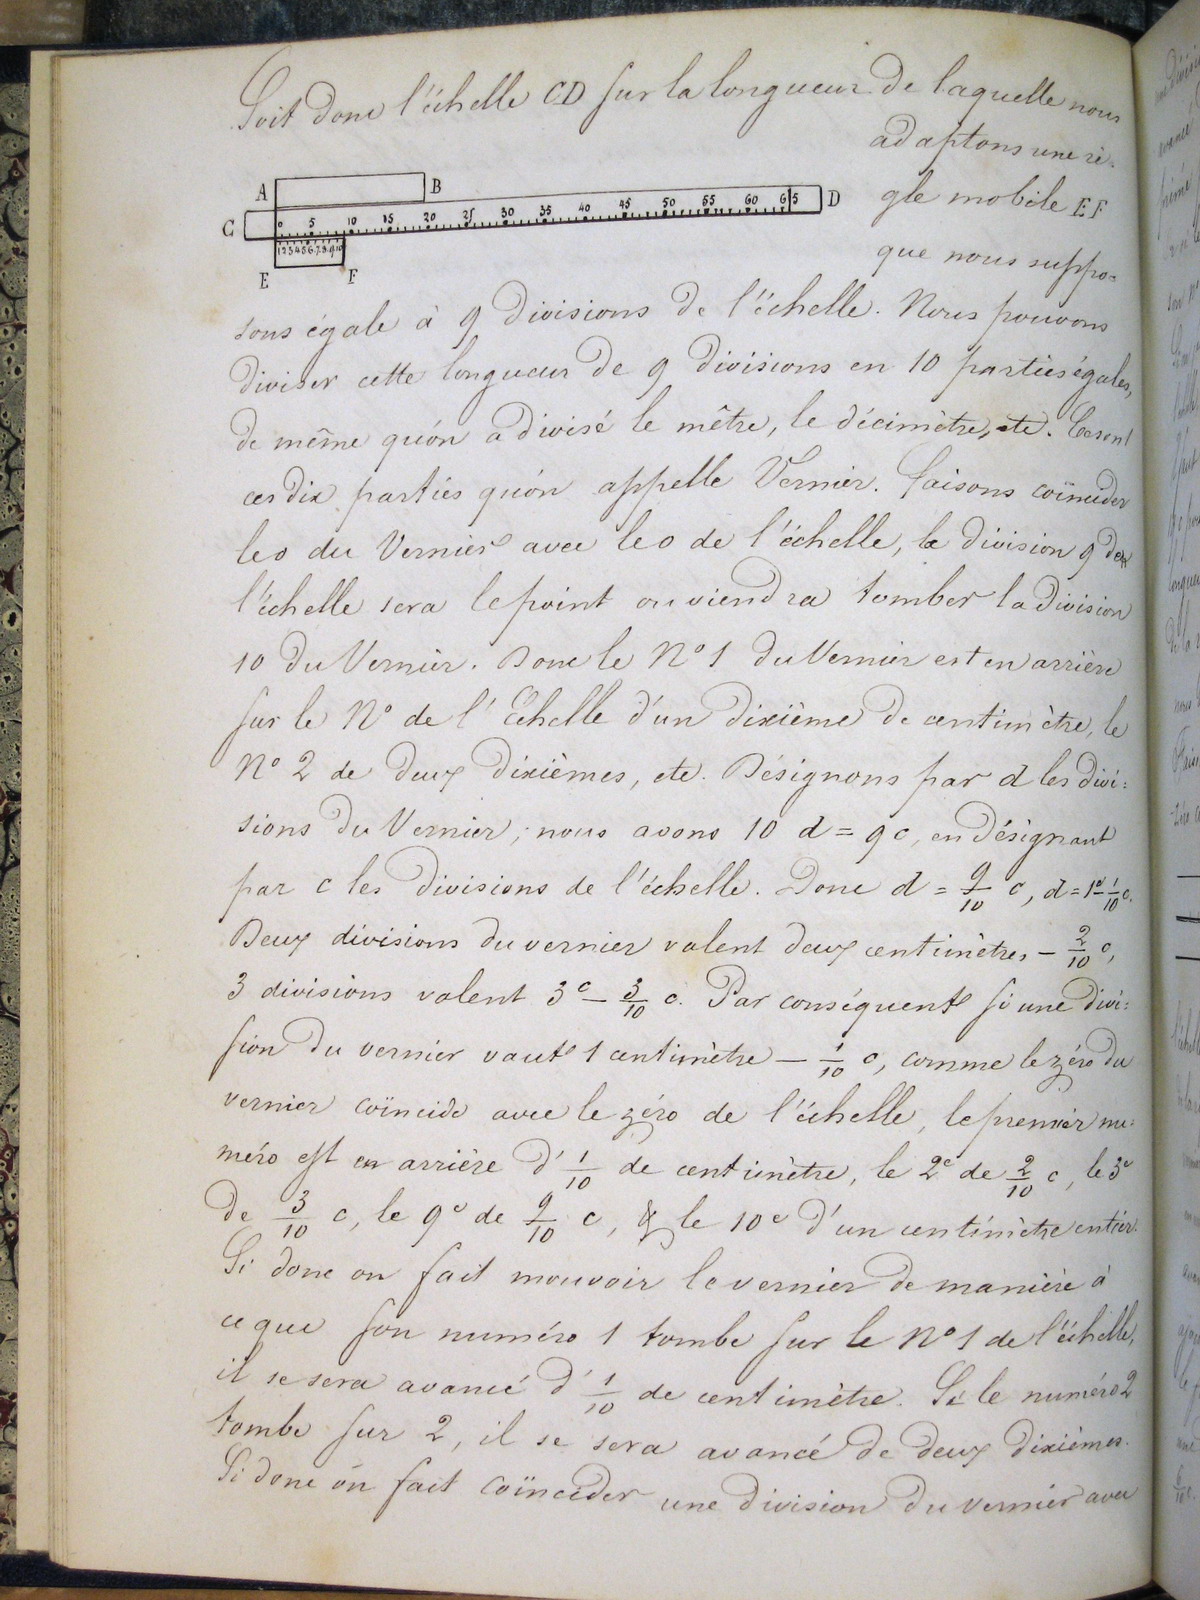 Soit donc l'échelle CD sur la longueur de laquelle nous
adaptons une rè-
gle mobile EF
que nous suppo-
A B
C 0 5 10 15 20 25 30 35 40 45 50 55 60 65 D
1 2 3 4 5 6 7 8 9 10
E F
sons égale à 9 divisions de l'échelle. Nous pouvons
diviser cette longueur de 9 divisions en 10 parties égales,
de même qu'on a divisé le mêtre, le décimètre, etc. Ce sont
ces dix parties qu'on appelle Vernier. Faisons coïncider
le 0 du Vernier avec le 0 de l'échelle, la division 9 de
l'échelle sera le point ou viendra tomber la division
10 du Vernier. Donc le N° 1 du Vernier est en arrière
sur le N° de l'Echelle d'un dixième de centimètre, le
N° 2 de deux dixièmes, etc. Désignons par d les divi=
sions du Vernier, nous avons 10 d = 9 c, en désignant
par c les divisions de l'échelle. Donc d = 9/10 c, d = 1c - 1/10 c.
Deux divisions du vernier valent deux centimètres - 2/10 c,
3 divisions valent 3c - 3/10 c. Par conséquent si une divi=
sion du vernier vaut 1 centimètre - 1/10 c, comme le zéro du
vernier coïncide avec le zéro de l'échelle, le premier nu=
méro est en arrière d'1/10 de centimètre, le 2e de 2/10 c, le 3e
de 3/10 c, le 9e de 9/10 c, & le 10e d'un centimètre entier.
Si donc on fait mouvoir le vernier de manière à
ce que son numéro 1 tombe sur le N° 1 de l'échelle,
il se sera avancé d'1/10 de centimètre. Si le numéro 2
tombe sur 2, il se sera avancé de deux dixièmes.
Si donc on fait coïncider une division du vernier avec